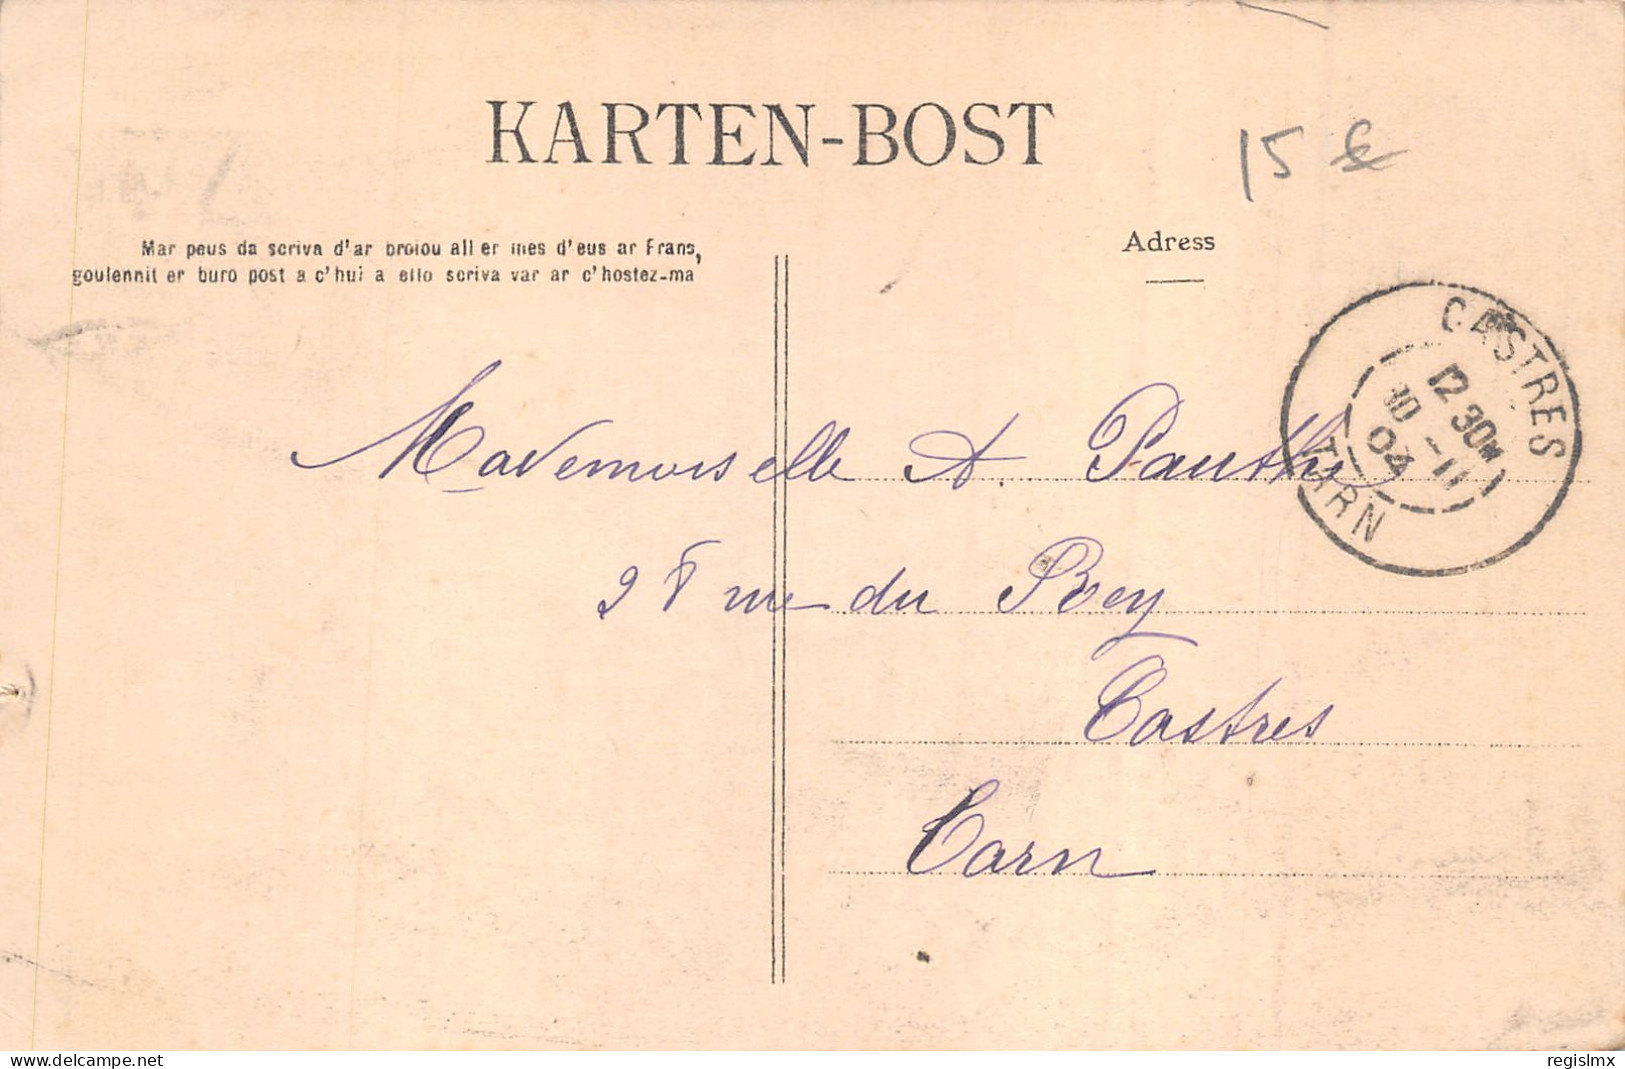 KARTEN-BOST
15 €
Mar peus da scriva d'ar broiou all er mes d'eus ar Frans,
goulennit er buro post a c'hui a ello scriva var ar c'hostez-ma
Adress
CASTRES
12 30
10 -11
04
TARN
Mademoiselle A. Pauthe
28 rue du Rey
Castres
Tarn
regislmx
delcampe.net